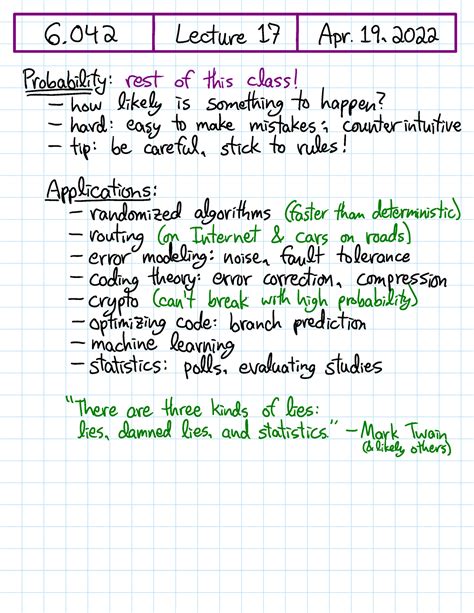 6.042 Lecture 17 Apr. 19, 2022
Probability: rest of this class!
– how likely is something to happen?
– hard: easy to make mistakes; counterintuitive
– tip: be careful, stick to rules!
Applications:
– randomized algorithms (faster than deterministic)
– routing (on Internet & cars on roads)
– error modeling: noise, fault tolerance
– coding theory: error correction, compression
– crypto (can't break with high probability)
– optimizing code: branch prediction
– machine learning
– statistics: polls, evaluating studies
"There are three kinds of lies:
lies, damned lies, and statistics." – Mark Twain
(& likely others)